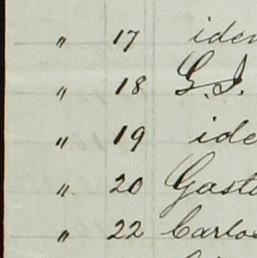 " 17 iden
" 18 G. I.
" 19 ide
" 20 Gasto
" 22 Carlos